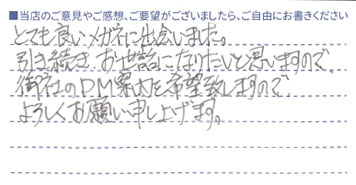 ■当店のご意見やご感想、ご要望がございましたら、ご自由にお書きください
とても良いメガネに出会いました。
引き続き、お世話になりたいと思いますので、
御社のDM案内を希望致しますので
よろしくお願い申し上げます。